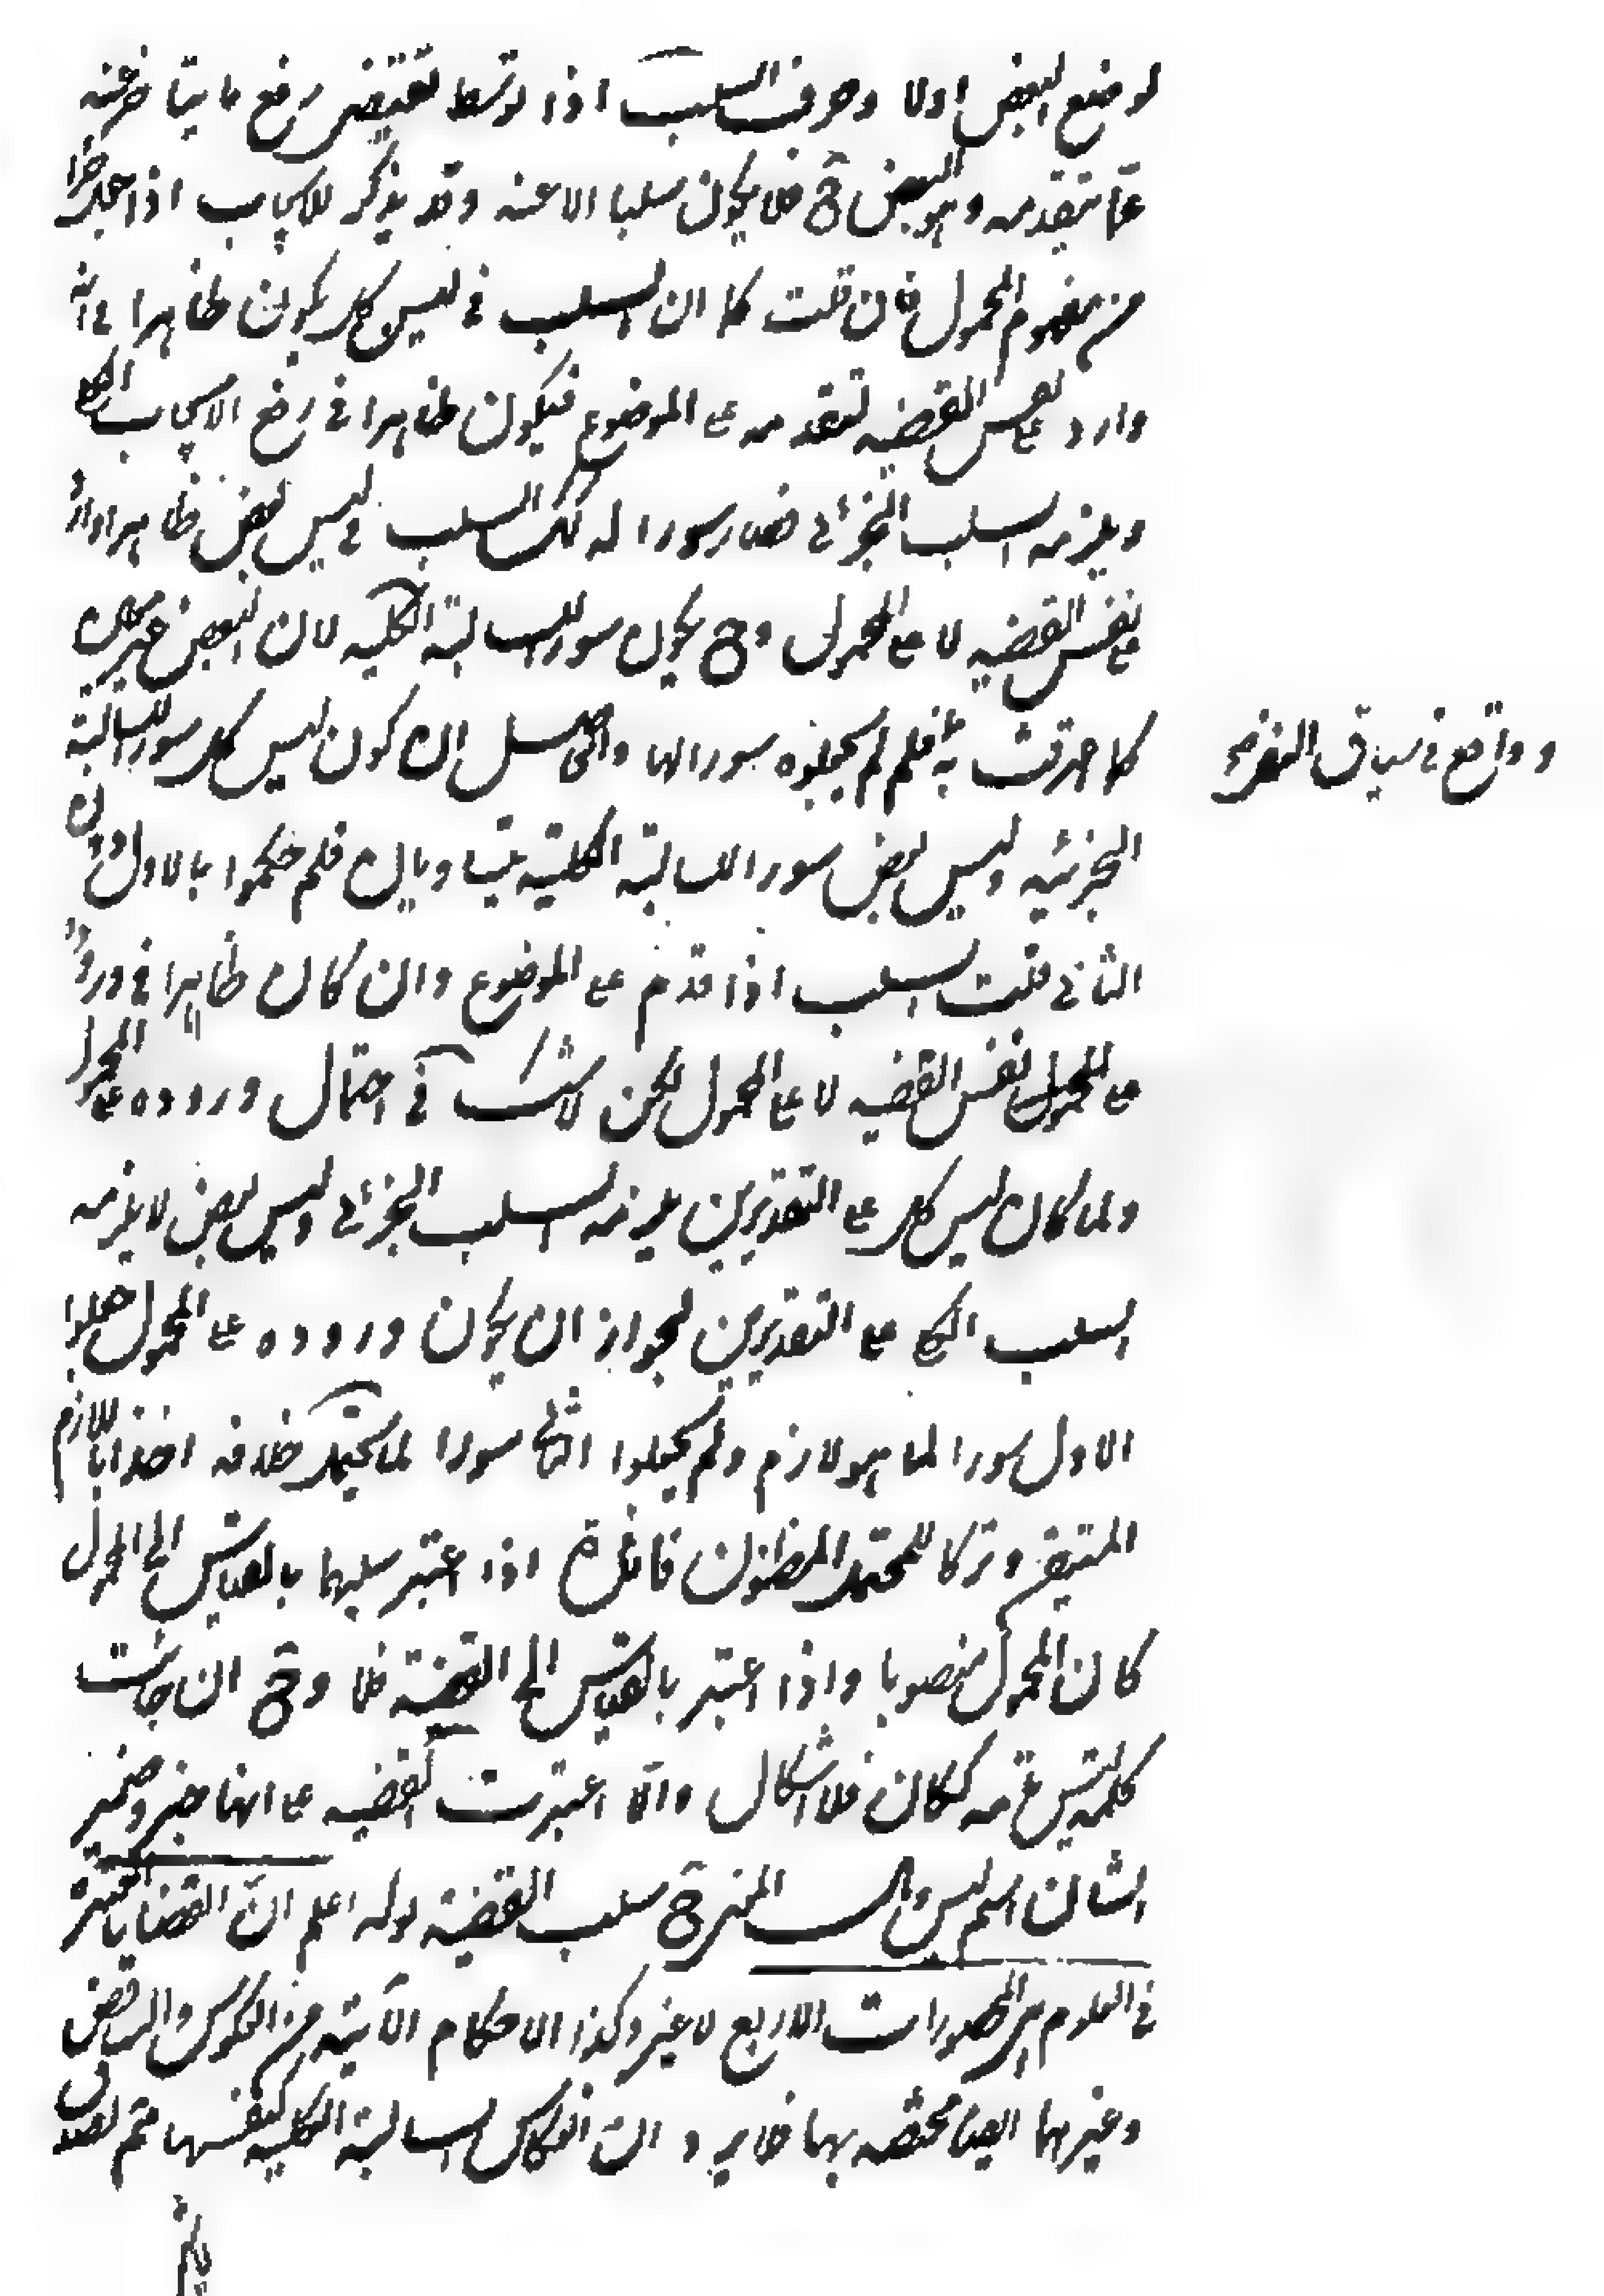 لوضع البعض اولا وحرف السلب اذا توسط يقتضى رفع ما يتاخر عنه
عما يتقدمه وهو البعض ح فلا يكون سلبا الا عنه وقد يذكر للايجاب اذا جعل جزا
من مفهوم المحمول فان قلت كما ان السلب فى ليس كل يكون ظاهرا فى انه
وارد على نفس القضيه لتقدمه على الموضوع فيكون ظاهرا فى رفع الايجاب الكلى
ويلزمه السلب الجزئى فصار سورا له كذلك السلب فى ليس بعض ظاهرا وارد
على نفس القضيه لا على المحمول وح يكون سورا للسالبة الكليه لان البعض غير معين
وواقع فى سياق النفى صح
كما حرفت به فلم لم يجعلوه سورا لها والحاصل ان كون ليس كل سور السالبة
الجزئيه وليس بعض سورا للسالبة الكلية يتساويان فلم حكموا بالاول دون
الثانى قلت السلب اذا قدم على الموضوع وان كان ظاهرا فى وروده
على نفس القضيه لا على المحمول لكن لا شك فى احتمال وروده على المحمول
ولما كان ليس كل على التقديرين يلزمه السلب الجزئى وليس بعض لا يلزمه
السلب الكلى على التقديرين لجواز ان يكون وروده على المحمول جعلوا
الاول سورا لما هو لازم ولم يجعلوا الثانى سورا لما يحتمل خلافه اخذا باللازم
المتيقن وتركا للمحتمل المظنون فان قلت اذا اعتبر سلبها بالقياس الى المحمول
كان المحمول منصوبا واذا اعتبر بالقياس الى القضية فلا وح ان جائت
كلمة ليس فلا اشكال والا اعتبرت القضيه على انها خبر وضمير
الشان اسم ليس والسلب ح سلب القضية قوله اعلم ان القضايا المعتبرة
فى العلوم هى المحصورات الاربع لا غير وكذا الاحكام الآتيه من العكوس والتناقض
وغيرهما ايضا مختصه بها فلا يرد ان انعكاس السالبة الكليه كنفسها